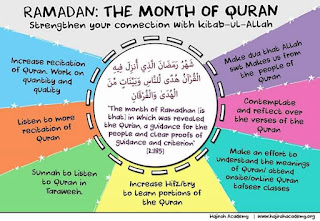 RAMADAN: THE MONTH OF QURAN
Strengthen your connection with kitab-UL-ALLAH
Increase recitation
of Quran. Work on
quantity and
quality
Listen to more
recitation of
Quran
Sunnah to listen
to Quran in
Taraweeh.
Increase Hifz/try
to learn portions of
the Quran
شَهْرُ رَمَضَانَ الَّذِي أُنزِلَ فِيهِ
الْقُرْآنُ هُدًى لِّلنَّاسِ وَبَيِّنَاتٍ مِّنَ
الْهُدَىٰ وَالْفُرْقَانِ
"The month of Ramadhan [is
that] in which was revealed
the Quran, a guidance for the
people and clear proofs of
guidance and criterion"
(2:185)
Make dua that Allah
swt Makes us from
the people of
Quran
Contemplate
and reflect over
the verses of the
Quran
Make an effort to
understand the meanings
of Quran/ attend
onsite/online Quran
tafseer classes
Hajirah Academy | www.hajirahacademy.org